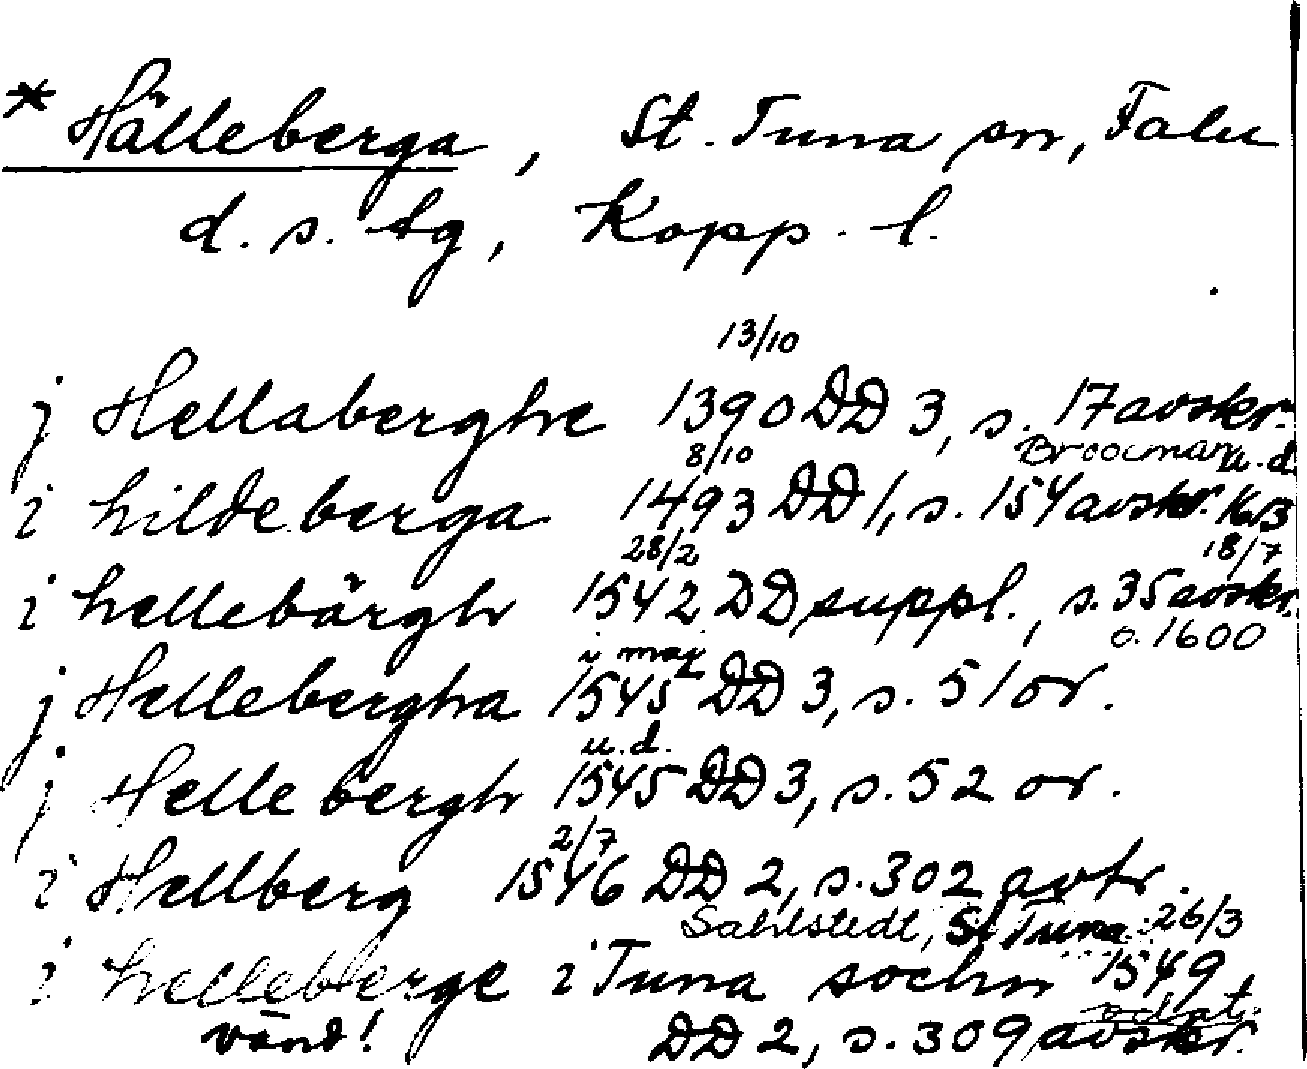 * Hälleberga, St. Tuna sn, Falu
d. s. tg, Kopp. l.
13/10
j Hellaberghe 1390 DD 3, s. 17 avskr.
8/10 Broocman u. d.
i hildeberga 1493 DD 1, s. 154 avskr.
28/2 18/7
i hellebärgh 1542 DD suppl., s. 35 avskr.
i maj o. 1600
j Hellebergha 1545 DD 3, s. 51 or.
u. d.
j Hellebergh 1545 DD 3, s. 52 or.
2/7
i Hellberg 1546 DD 2, s. 302 avtr.
Sahlstedt, St Tuna 26/3
i helleberge i Tuna sochn 1549,
vänd! DD 2, s. 309 avskr.